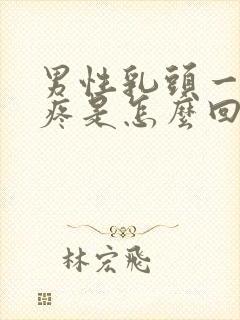 男性乳頭一
疼是怎麼回
林宏飛